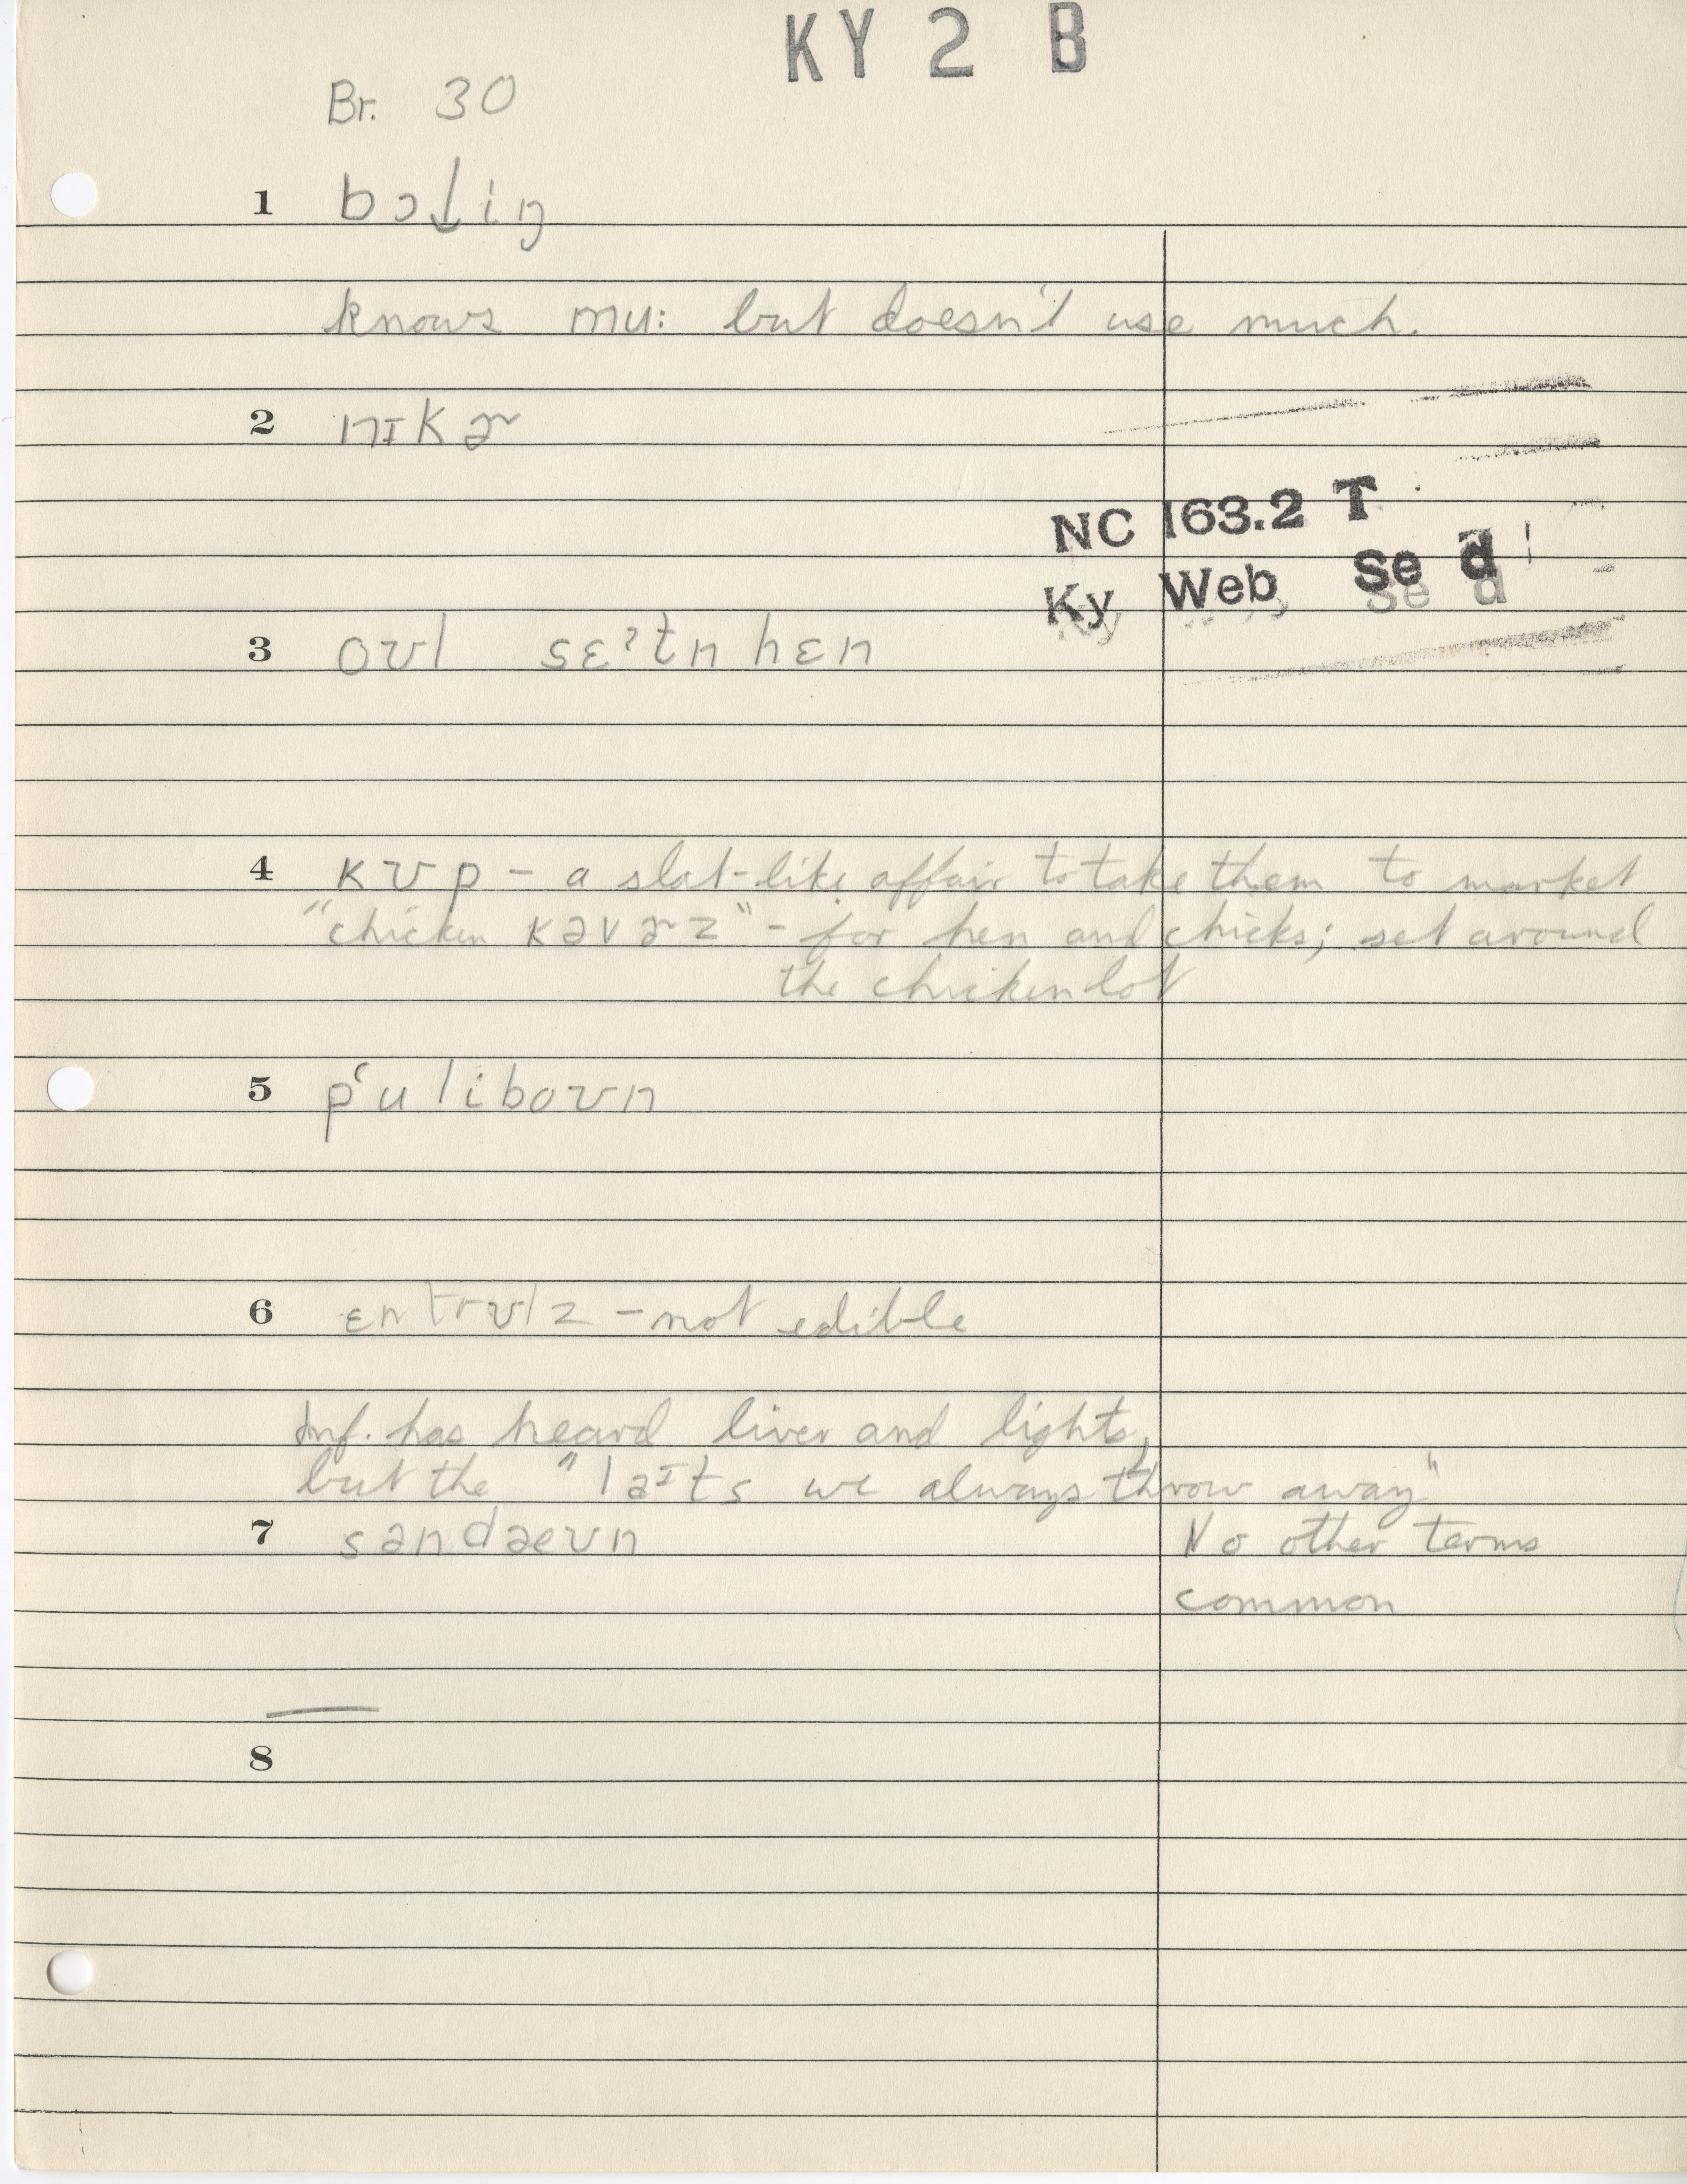 KY 2 B
Br. 30
1 bɔɫiŋ
knows mu: but doesn't use much.
2 nɪkɚ
NC 163.2 T
Ky Web, Se d
3 oʊl sɛʔtn hɛn
4 kʊp – a slat-like affair to take them to market
"chicken kəvɚz" – for hen and chicks; set around
the chicken lot
5 pʻuliboʊn
6 ɛntrʊlz – not edible
Inf. has heard liver and lights,
but the "laɪts we always throw away"
7 səndaeʊn No other terms
common
8